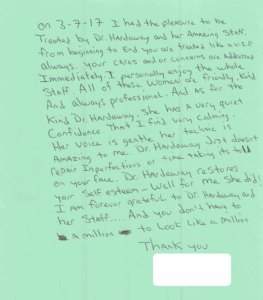 on 3-7-17 I had the pleasure to be
Treated by Dr. Hardaway and her Amazing Staff.
from beginning to End you are treated like a V.I.P
always. your cares and or concerns are addressed
Immediately. I personally enjoy the whole
Staff. All of these Women are friendly, Kind
And always professional. And as for the
Kind Dr. Hardaway, she has a very quiet
Confidence That I find very calming.
Her voice is gentle her technic is
Amazing to me. Dr. Hardaway Just doesn't
repair Imperfections or time taking its toll
on your face. Dr. Hardaway restores
your Self esteem - Well for me She did!
I am forever grateful to Dr. Hardaway and
her Staff.... And you don't have to
a million to Look Like a Million
Thank you